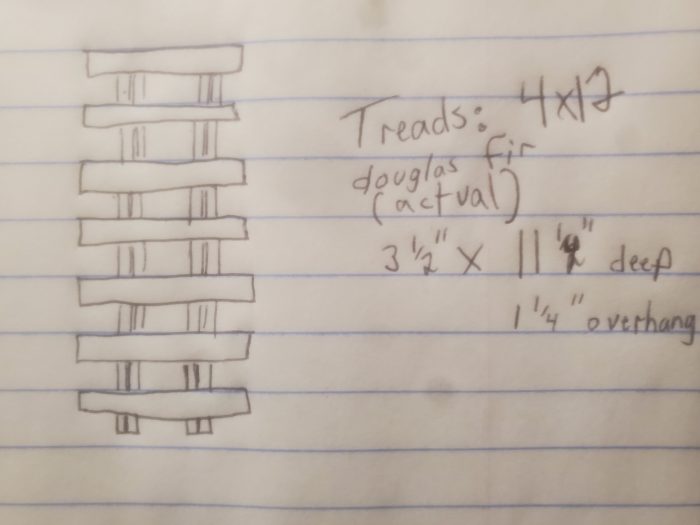 Treads: 4x12
douglas fir
(actual)
3 1/2" x 11 1/2" deep
1 1/4" overhang